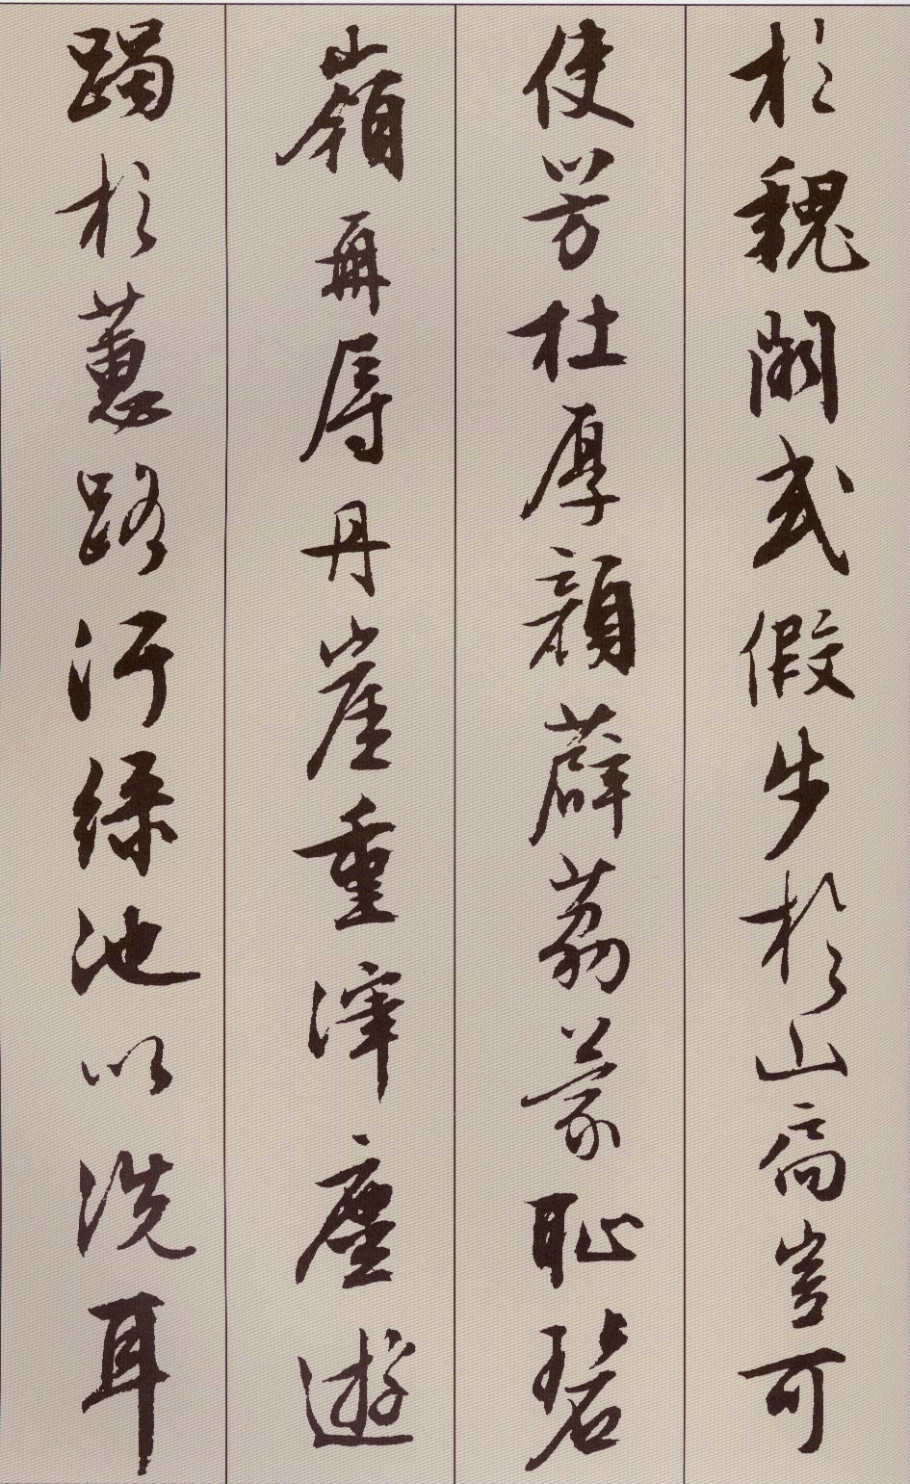 於魏闕或假步於山扃豈可
使芳杜厚顏薜荔蒙耻碧
嶺再辱丹崖重滓塵遊
躅於蕙路汙綠池以洗耳